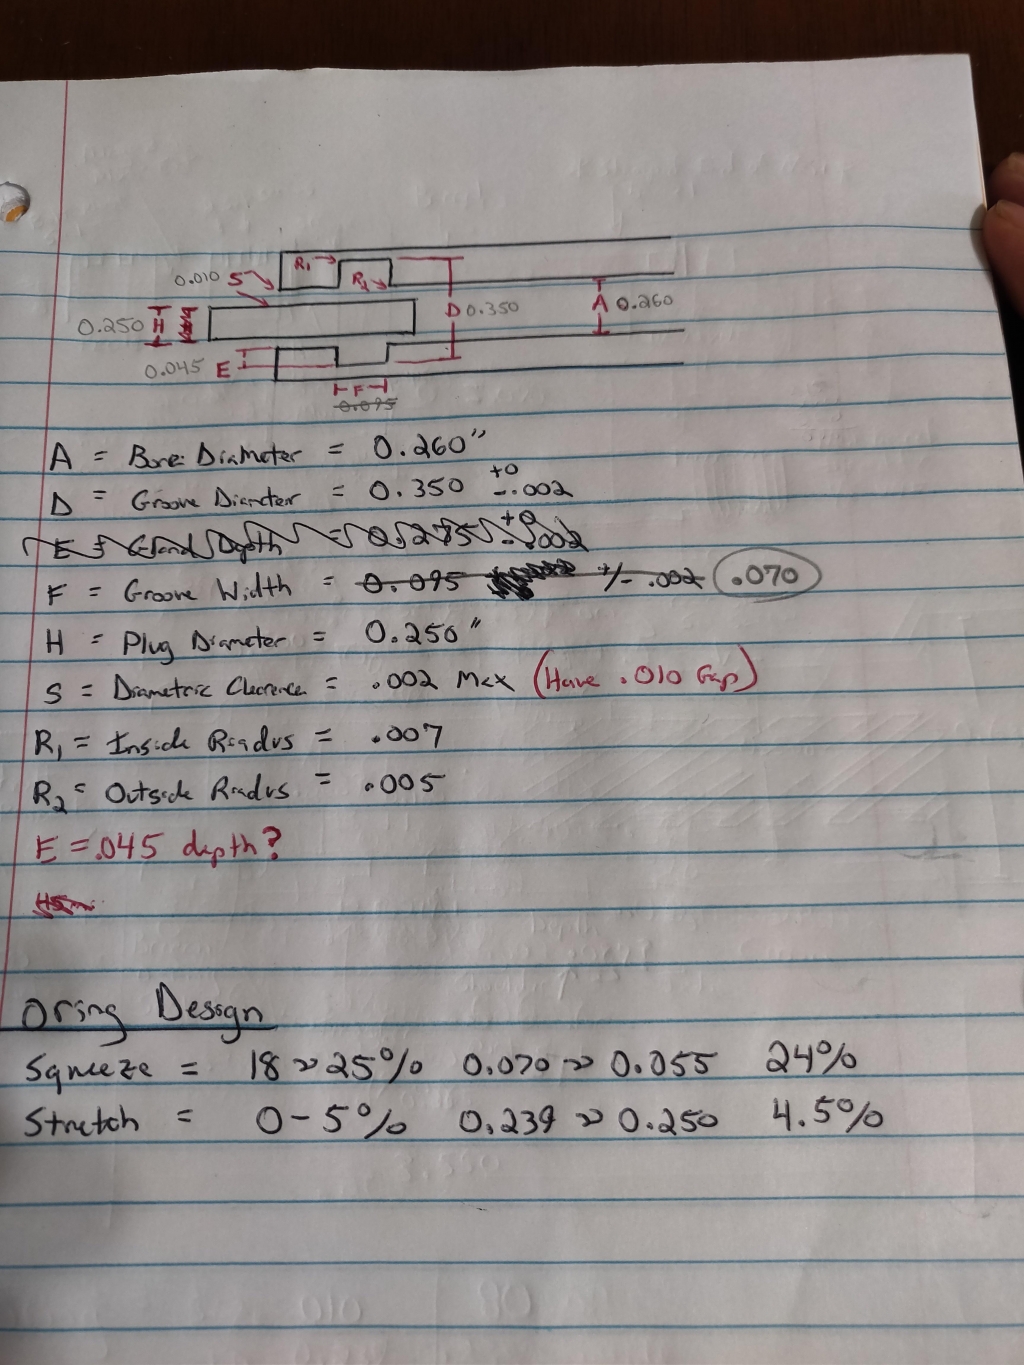 R₁
0.010 S
R₂
D 0.350
A 0.260
0.250 H
0.045 E
F
0.095
A = Bore Diameter = 0.260"
D = Groove Diameter = 0.350 +0 -.002
E = Gland Depth = 0.275 +0 -.002
F = Groove Width = 0.095 +/- .002 .070
H = Plug Diameter = 0.250"
S = Diametric Clearence = .002 Max (Have .010 Gap)
R₁ = Inside Radius = .007
R₂ = Outside Radius = .005
E = .045 depth?
Oring Design
Squeeze = 18 → 25% 0.070 → 0.055 24%
Stretch = 0-5% 0.239 → 0.250 4.5%